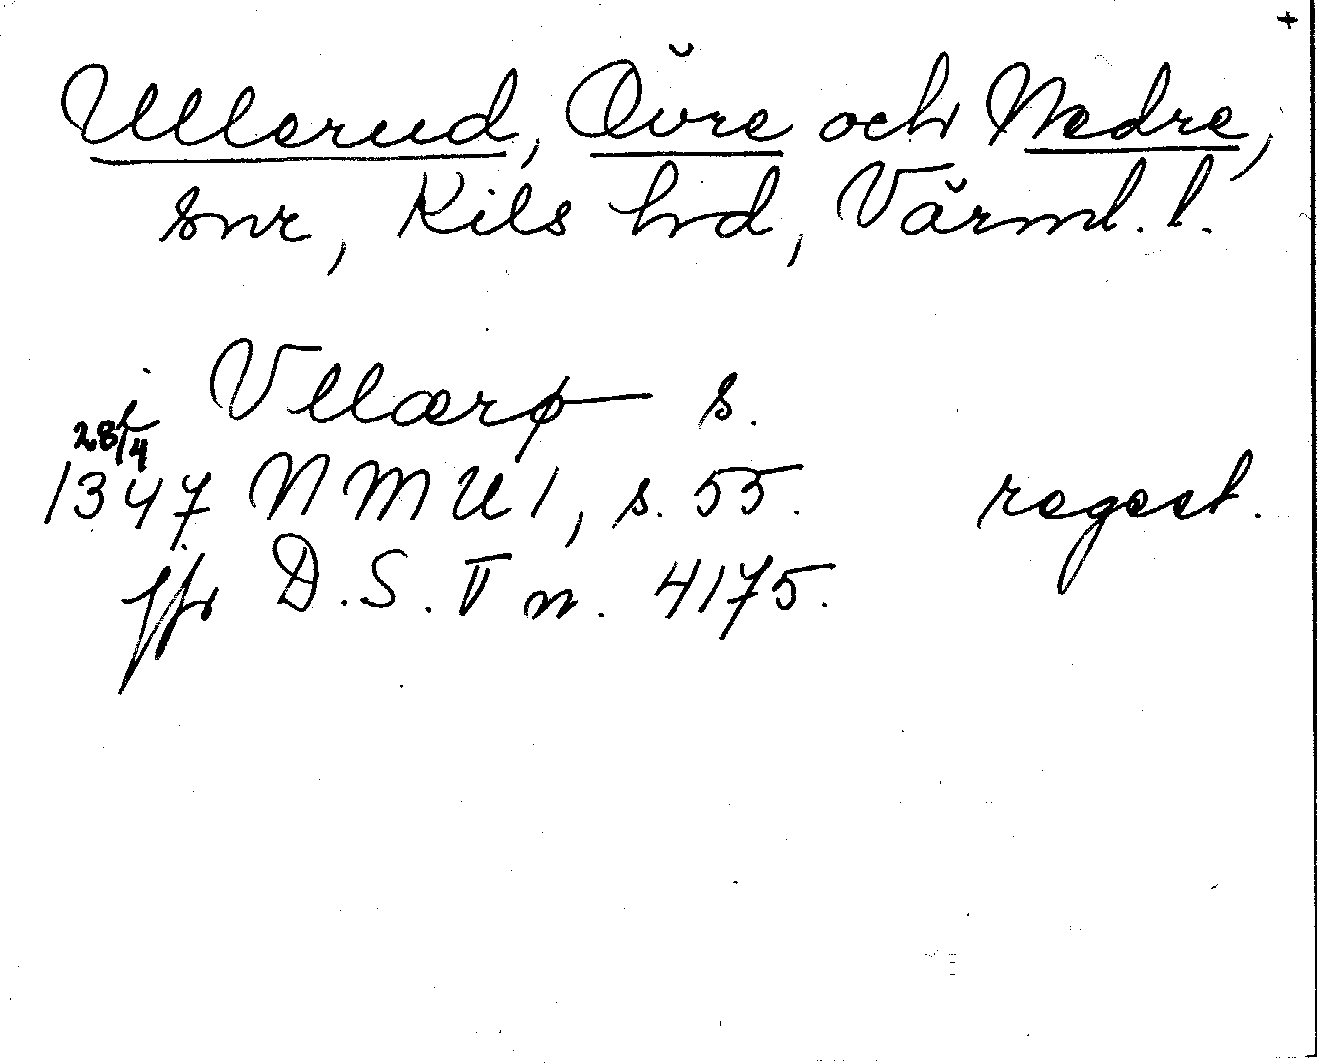 +
Ullerud, Övre och Nedre,
snr, Kils hrd, Värml. l.
j Vllærø s.
28/4
1347 NMU 1, s. 55. regest.
jfr D.S. V n. 4175.